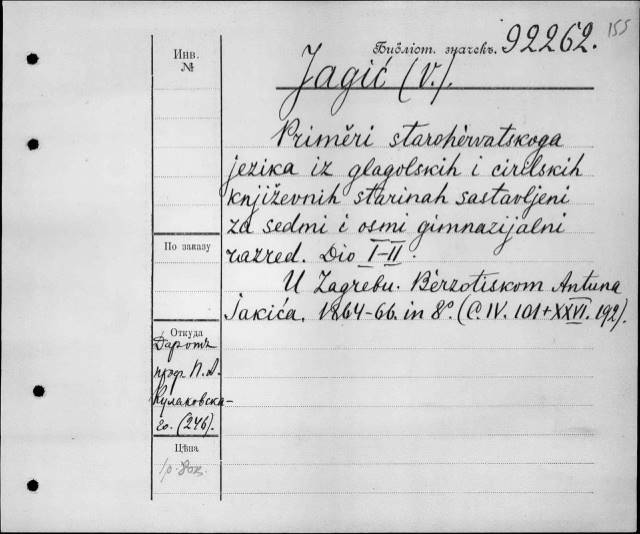 155
Библіот. значекъ. 92262.
Инв.
№
Jagić (V.).
Priměri starohèrvatskoga
jezika iz glagolskih i cirilskih
književnih starinah sastavljeni
za sedmi i osmi gimnazijalni
razred. Dio I-II.
U Zagrebu. Bèrzotiskom Antuna
Jakića. 1864-66. in 8º. (C. IV. 101+XXVI. 192).
По заказу
Откуда
Даромъ
проф. П. А.
Кулаковска-
го. (246).
Цѣна
1 р.